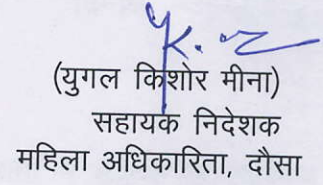 (युगल किशोर मीना)
सहायक निदेशक
महिला अधिकारिता, दौसा